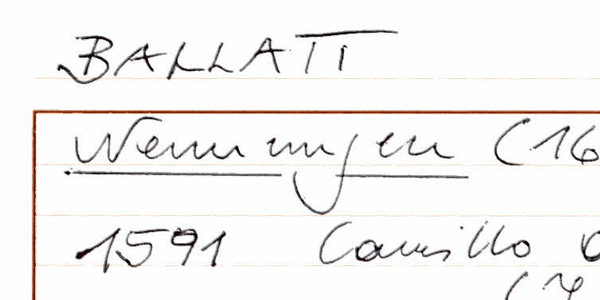 BALLATI
Nennungen (16
1591 Camillo
(7